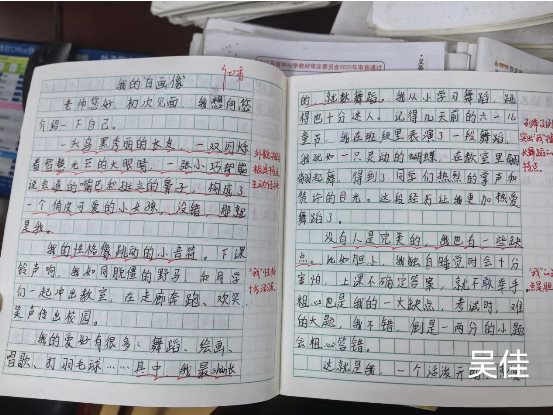 我的自画像
老师您好,初次见面,我想向您
介绍一下自己。
一头乌黑秀丽的长发,一双闪烁
着智慧光芒的大眼睛,一张小巧玲珑能
说会道的嘴巴和挺立的鼻子,构成了
一个俏皮可爱的小女孩,没错,那就
是我。
我的性格像跳动的小音符。下课
铃声响,我如同脱僵的野马,和同学
们一起冲出教室,在走廊奔跑、欢笑,
笑声传出校园。
我的爱好有很多,舞蹈、绘画、
唱歌、打羽毛球……其中,我最shàn长
的,就数舞蹈。我从小学习舞蹈,跳
得也十分迷人。记得几天前的六一儿
童节,我在班级里表演了一段舞蹈,
我犹如一只灵动的蝴蝶,在教室里翩
翩起舞,得到了同学们热烈的掌声和
赞许的目光。这段经历让我更加热爱
舞蹈了。
没有人是完美的,我也有一些缺
点。比如胆小,我独自睡觉时会十分
害怕,上课不确定答案,就不敢举手。
粗心也是我的一大缺点,考试时,难
的大题,我不错,倒是一两分的小题
会粗心答错。
这就是我,一个活泼开朗
吴佳